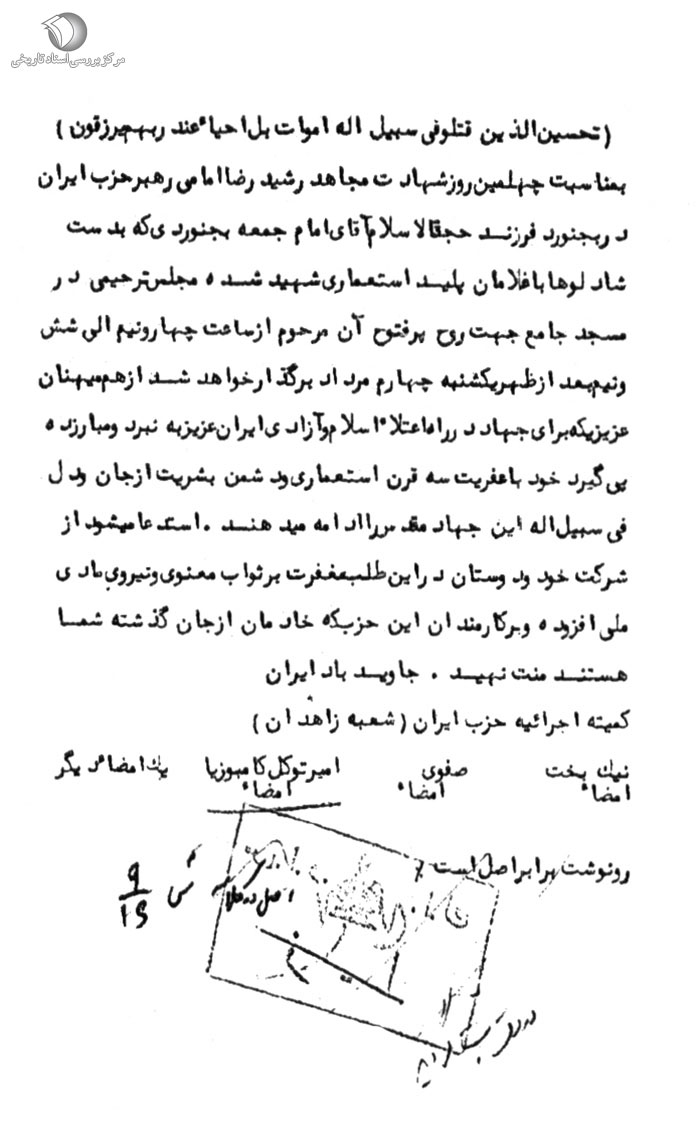 مرکز بررسی اسناد تاریخی
(تحسین الذین قتلوفی سبیل اله اموات بل احیاء عند ربهم یرزقون)
بمناسبت چهلمین روز شهادت مجاهد رشید رضا امامی رهبر حزب ایران
در بجنورد فرزند حجة‌الاسلام آقای امام جمعه بجنوردی که بدست
شادلوها با غلامان پلید استعماری شهید شده مجلس ترحیمی در
مسجد جامع جهت روح پرفتوح آن مرحوم از ساعت چهارونیم الی شش
ونیم بعد از ظهر یکشنبه چهارم مرداد برگذار خواهد شد از هم میهنان
عزیزیکه برای جهاد در راه اعتلاء اسلام و آزادی ایران عزیز به نبرد ومبارزه
پی گیرد خود با عفریت سه قرن استعماری ودشمن بشریت از جان ودل
فی سبیل اله این جهاد مقدس را ادامه میدهند . استدعا میشود از
شرکت خود ودوستان در این طلب مغفرت بر ثواب معنوی ونیروی مادی
ملی افزوده وبر کارمندان این حزب که خادمان از جان گذشته شما
هستند منت نهید . جاوید باد ایران
کمیته اجرائیه حزب ایران (شعبه زاهدان)
نیک بخت صفوی امیر توکل کامبوزیا یک امضاء دیگر
امضاء امضاء امضاء
رونوشت برابر اصل است
۹
۱۵